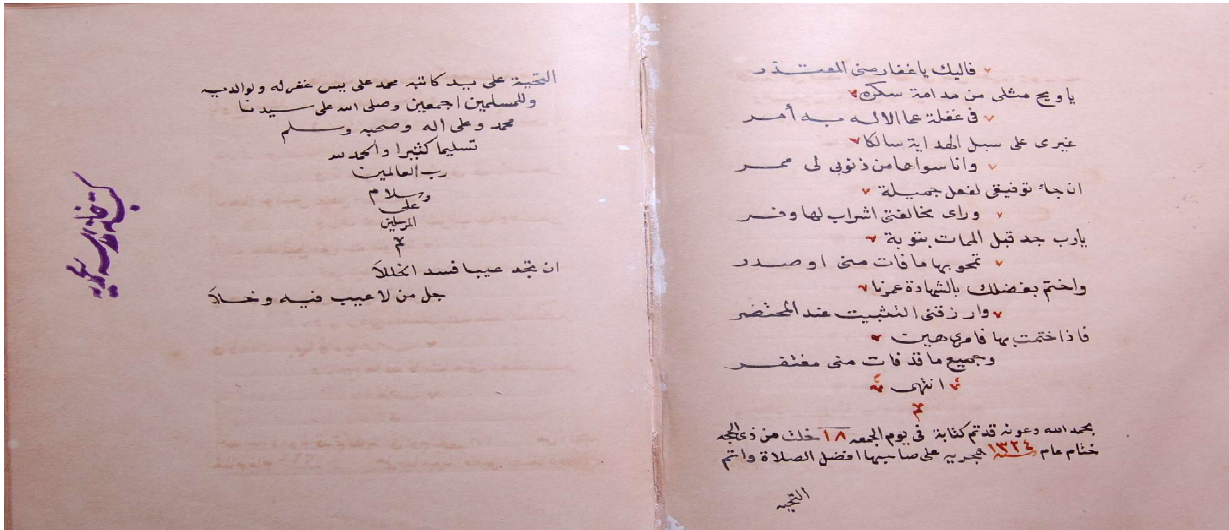 فاليك ياغفار منى المعتذر
ياويح مثلى من مدامة سكره
فى غفلة عما الاله به أمر
غيرى على سبل الهداية سالكا
وانا سواها من ذنوبى لى ممر
ان جاء توفيقى لفعل جميلة
وراى مخالفتى اشراب لها وفر
يارب جد قبل الممات بتوبة
تمحو بها ما فات منى او صدر
واختم بفضلك بالشهادة عمرنا
وارزقنى التثبيت عند المحتضر
فاذا ختمت بها فامرى هين
وجميع ما قد فات منى مغتفر
انتهى
م
بحمد الله وعونه قد تم كتابة فى يوم الجمعه ١٨ خلت من ذى الحجه
ختام عام ١٣٢٤ هجريه على صاحبها افضل الصلاة واتم
التحيه
التحية على يد كاتبه محمد على يس غفر له ولوالديه
وللمسلمين اجمعين وصلى الله على سيدنا
محمد وعلى اله وصحبه وسلم
تسليما كثيرا والحمد لله
رب العالمين
وسلام
على
المرسلين
م
ان تجد عيبا فسد الخللا
جل من لا عيب فيه وعلا